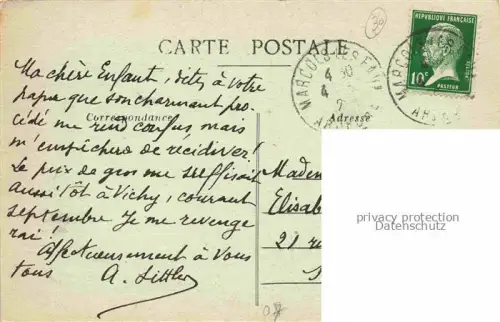 CARTE POSTALE
Ma chère Enfant, dites à votre
papa que son charmant pro-
cédé me rend confus, mais
Correspondance
m'empêchera de récidiver!
Le prix de gros me suffisait
aussitôt à Vichy, courant
septembre je me revenge
rai!
Affectueusement à Vous
tous
A.
Adresse
Madem
Elisab
21 r
privacy protection
Datenschutz
30
REPUBLIQUE FRANÇAISE
10c
PASTEUR
POSTES
MARCOLS LES EAUX
4
4
ARDECHE
MARCOLS
ARDECHE